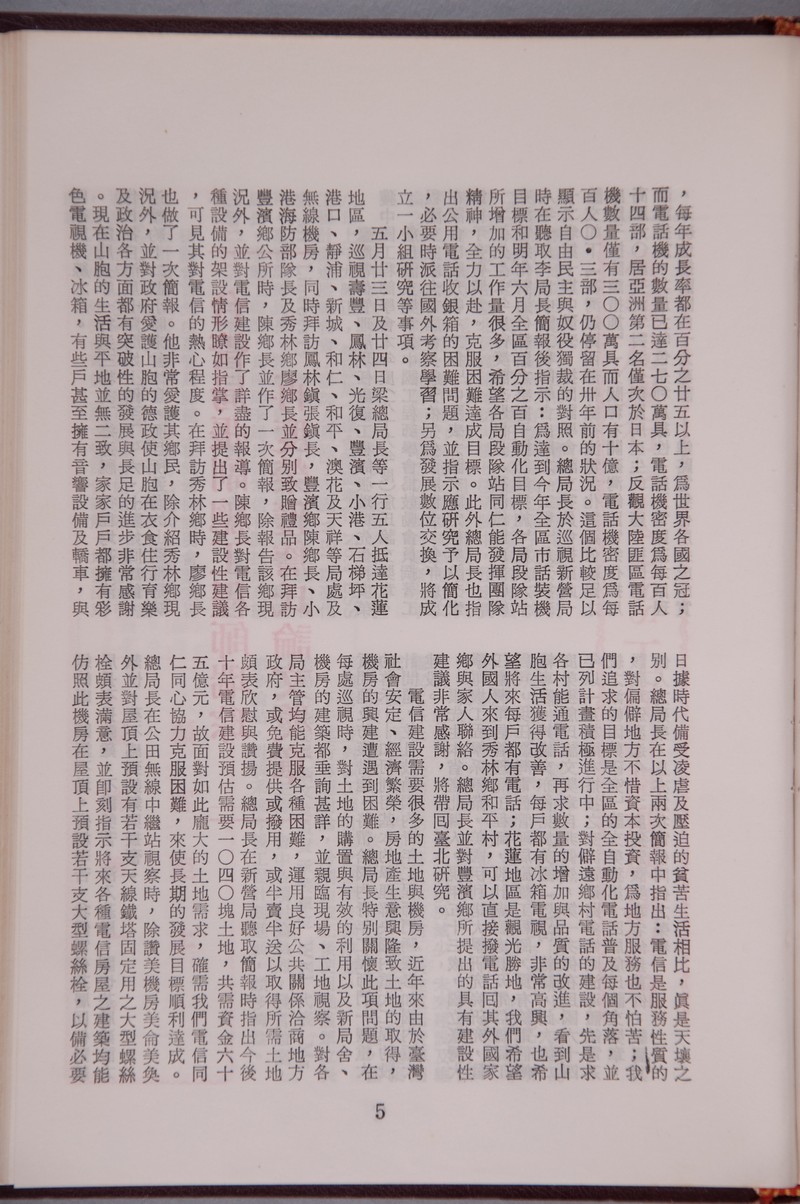 ，每年成長率都在百分之廿五以上，爲世界各國之冠；
而電話機的數量已達二七〇萬具，電話機密度爲每百人
十四部，居亞洲第二名僅次於日本；反觀大陸匪區電話
機數量僅有三〇〇萬具而人口有十億，電話機密度爲每
百人〇・三部，仍停留在卅年前的狀況。這個比較足以
顯示自由民主與奴役獨裁的對照。總局長於巡視新營局
時在聽取李局長簡報後指示：爲達到今年全區市話裝機
目標和明年六月全區百分之百自動化目標，各局段隊站
所增加的工作量很多，希望各局段隊站同仁能發揮團隊
精神，全力以赴，克服困難達成目標。此外總局長也指
出公用電話收銀箱的困難問題，並指示應研究予以簡化
，必要時派往國外考察學習；另爲發展數位交換，將成
立一小組研究等事項。
五月廿三日及廿四日梁總局長等一行五人抵達花蓮
地區，巡視壽豐、鳳林、光復、豐濱、小港、石梯坪、
港口、靜浦、新城、和仁、和平、澳花及天祥等局處及
無線機房，同時拜訪鳳林鎭張鎭長，豐濱鄉陳鄉長、小
港海防部隊長及秀林鄉廖鄉長並分別致贈禮品。在拜訪
豐濱鄉公所時，陳鄉長並作了一次簡報，除報告該鄉現
況外，並對電信建設作了詳盡的報導。陳鄉長對電信各
種設備的架設情形瞭如指掌，並提出了一些建設性建議
，可見其對電信的熱心程度。在拜訪秀林鄉時，廖鄉長
也做了一次簡報。他非常愛護其鄉民，除介紹秀林鄉現
況外，並對政府愛護山胞的德政使山胞在衣食住行育樂
及政治各方面都有突破性的發展與長足的進步非常感謝
。現在山胞的生活與平地並無二致，家家戶戶都擁有彩
色電視機、冰箱，有些戶甚至擁有音響設備及轎車，與
日據時代備受凌虐及壓迫的貧苦生活相比，眞是天壤之
別。總局長在以上兩次簡報中指出：電信是服務性質的
，對偏僻地方不惜資本投資，爲地方服務也不怕苦；我
們追求的目標是全區的全自動化電話普及每個角落，並
已列計畫積極進行中；對僻遠鄉村電話的建設，先是求
各村能通電話，再求數量的增加與品質的改進，看到山
胞生活獲得改善，每戶都有冰箱電視，非常高興，也希
望將來每戶都有電話；花蓮地區是觀光勝地，我們希望
外國人來到秀林鄉和平村，可以直接撥電話回其外國家
鄉與家人聯絡。總局長並對豐濱鄉所提出的具有建設性
建議非常感謝，將帶回臺北研究。
電信建設需要很多的土地與機房，近年來由於臺灣
社會安定、經濟繁榮，房地產生意興隆致土地的取得，
機房的興建遭遇到困難。總局長特別關懷此項問題，在
每處巡視時，對土地的購置與有效的利用以及新局舍、
機房的建築都垂詢甚詳，並親臨現場、工地視察。對各
局主管均能克服各種困難，運用良好公共關係洽商地方
政府，或免費提供或撥用，或半賣半送以取得所需土地
頗表欣慰與讚揚。總局長在新營局聽取簡報時指出今後
十年電信建設預估需要一〇四〇塊土地，共需資金六十
五億元，故面對如此龐大的土地需求，確需我們電信同
仁同心協力克服困難，來使長期的發展目標順利達成。
總局長在公田無線中繼站視察時，除讚美機房美侖美奐
外並對屋頂上預設有若干支天線鐵塔固定用之大型螺絲
栓頗表滿意，並卽刻指示將來各種電信房屋之建築均能
仿照此機房在屋頂上預設若干支大型螺絲栓，以備必要
5